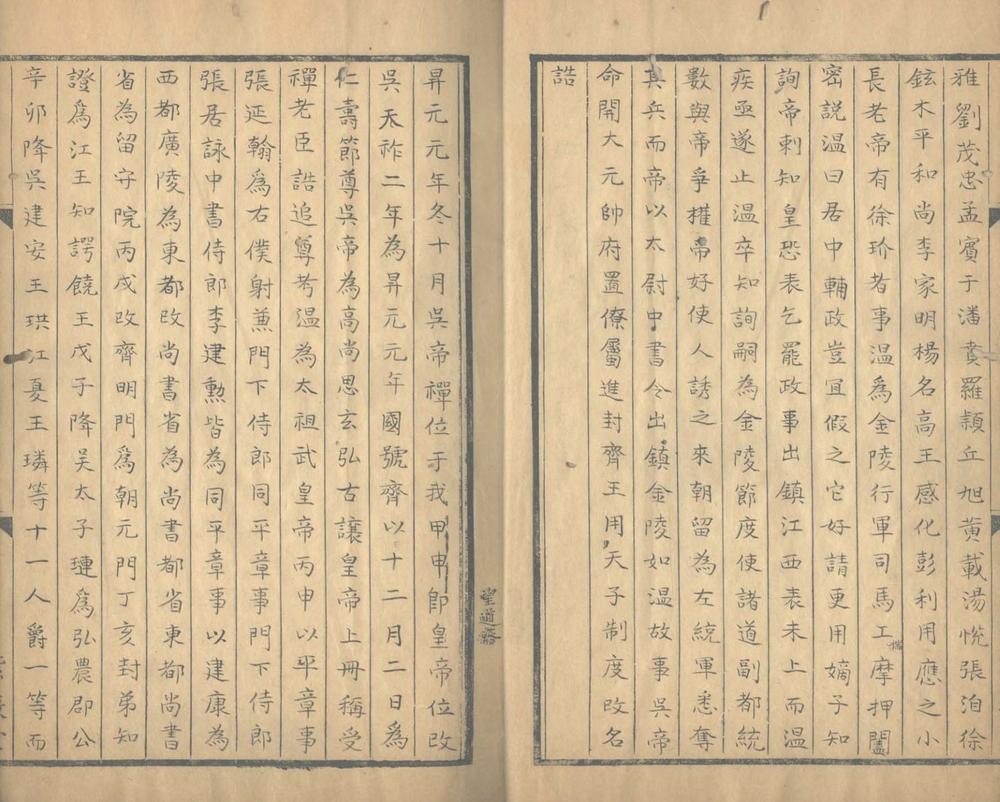 雅劉茂忠孟賓于潘賁羅潁丘旭黄載湯悅張洎徐
鉉木平和尚李家明楊名高王感化彭利用應之小
長老帝有徐玠者事温爲金陵行軍司馬工揣摩押闔
密説温曰居中輔政豈宜假之它好請更用嫡子知
詢帝刺知皇恐表乞罷政事出鎮江西表未上而温
疾亟遂止温卒知詢嗣為金陵節度使諸道副都統
數與帝爭權帝好使人誘之來朝留為左統軍悉奪
其兵而帝以太尉中書令出鎮金陵如温故事吳帝
命開大元帥府置僚屬進封齊王用天子制度改名
誥
昇元元年冬十月吳帝禪位于我甲申即皇帝位改
吳天祚二年為昇元元年國號齊以十二月二日為
仁壽節尊吳帝為高尚思玄弘古讓皇帝上冊稱受
禪老臣誥追尊考温為太祖武皇帝丙申以平章事
張延翰為右僕射兼門下侍郎同平章事門下侍郎
張居詠中書侍郎李建勲皆為同平章事以建康為
西都廣陵為東都改尚書省為尚書都省東都尚書
省為留守院丙戌改齊明門爲朝元門丁亥封弟知
證爲江王知諤饒王戊子降吳太子璉爲弘農郡公
辛卯降吳建安王珙江夏王璘等十一人爵一等而
望道齋